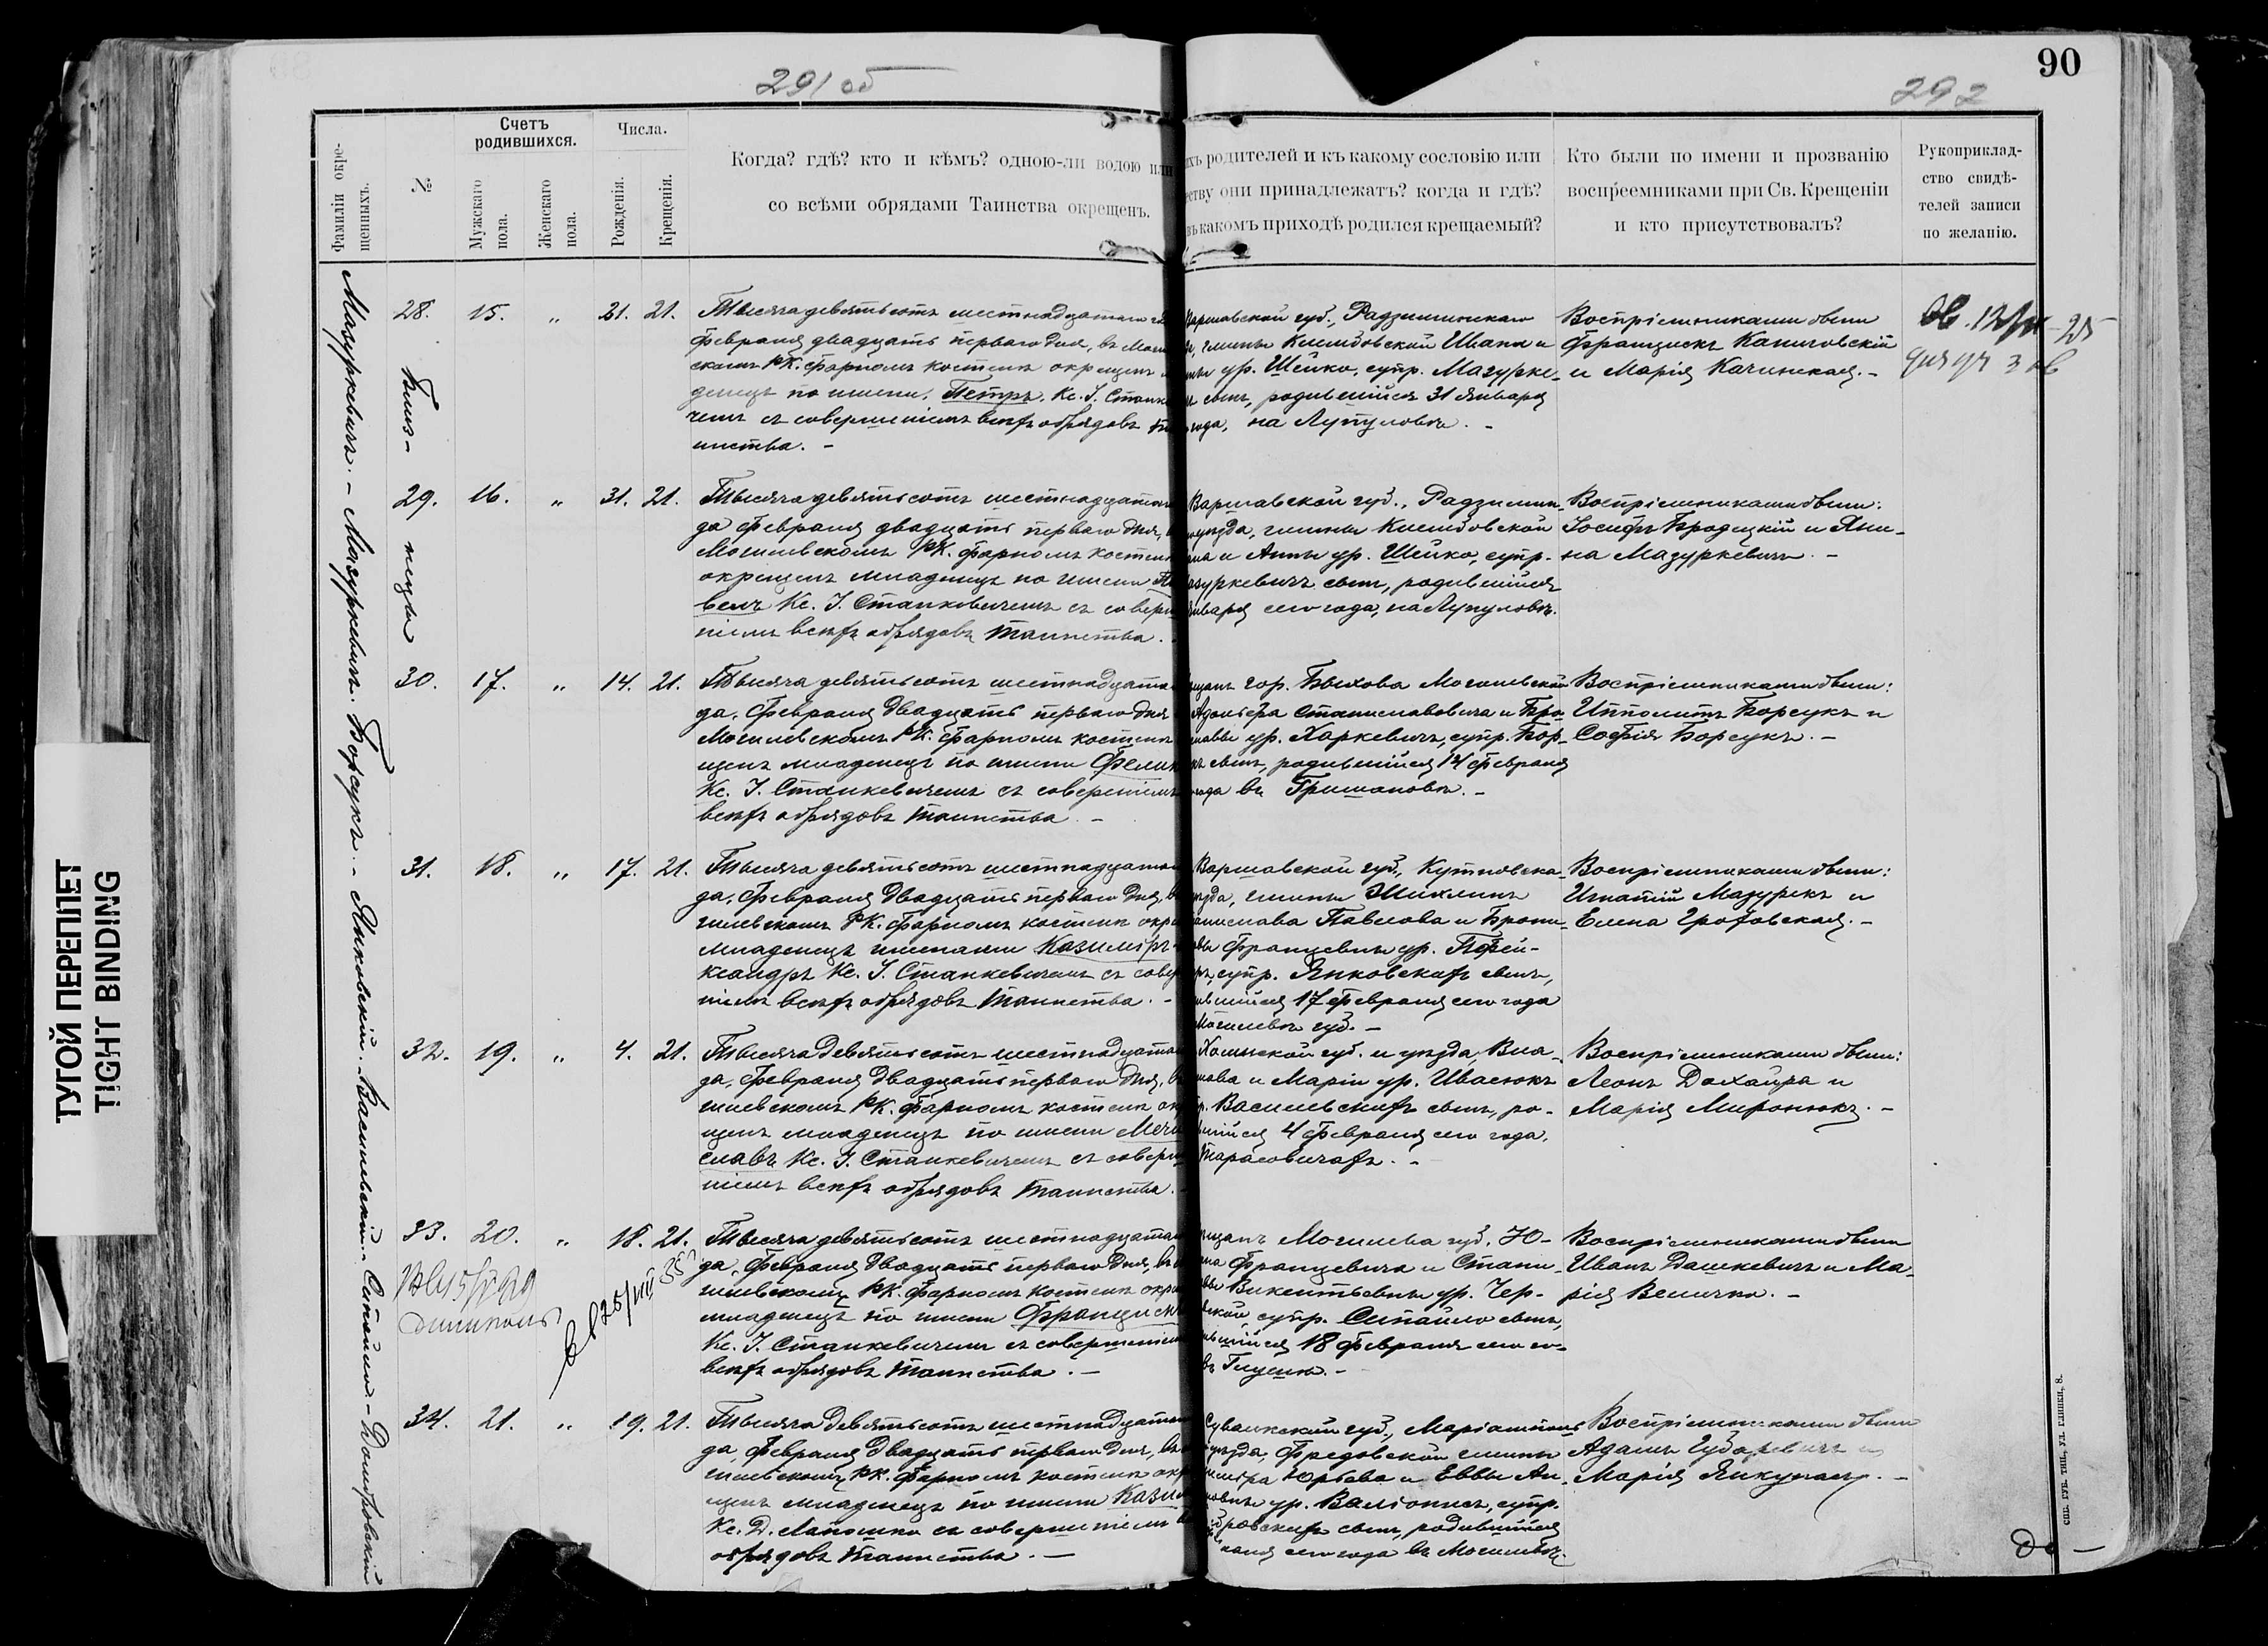 90
291 об
292
Фамиліи окре-
щенныхъ.
№
Счетъ
родившихся.
Мужскаго
пола.
Женскаго
пола.
Числа.
Рожденія.
Крещенія.
Когда? гдѣ? кто и кѣмъ? одною-ли водою или
со всѣми обрядами Таинства окрещенъ.
ихъ родителей и къ какому сословію или
еству они принадлежатъ? когда и гдѣ?
въ какомъ приходѣ родился крещаемый?
Кто были по имени и прозванію
воспреемниками при Св. Крещеніи
и кто присутствовалъ?
Рукоприклад-
ство свидѣ-
телей записи
по желанію.
Мазуркевичъ. – Мазуркевичъ. Борсукъ. – Янковскій. Василевскій. Ситайло – Домбровскій
Близ-
нецы
28. 15. „ 31. 21.
Тысяча девятьсотъ шестнадцатаго
февраля двадцать перваго дня, въ
скомъ РК. фарномъ костелѣ окрещенъ
денецъ по имени Петръ, Кс. І.
чемъ съ совершеніемъ всѣхъ обрядовъ
инства. –
Варшавской губ., Радзиминскаго
гмины Клембовской Ивана и
ур. Шейко, супр. Мазурке-
сынъ, родившійся 31 января
года, на Лупуловѣ. –
Воспріемниками были
Францискъ Каниговскій
и Марія Качинская. –
29. 16. „ 31. 21.
Тысяча девятьсотъ шестнадцатаго
да февраля двадцать перваго дня,
Могилевскомъ РК. фарномъ костелѣ
окрещенъ младенецъ по имени Па
велъ Кс. І. Станкевичемъ съ соверше
ніемъ всѣхъ обрядовъ таинства.
Варшавской губ., Радзимин-
уѣзда, гмины Клембовской
на и Анны ур. Шейко, супр.
азуркевичъ сынъ, родившійся
января сего года, на Лупуловѣ.
Воспріемниками были:
Іосифъ Бродецкій и Яни-
на Мазуркевичъ. –
30. 17. „ 14. 21.
Тысяча девятьсотъ шестнадцата
да, февраля двадцать перваго дня
Могилевскомъ РК. фарномъ костелѣ
щенъ младенецъ по имени Феликс
Кс. І. Станкевичемъ съ совершеніемъ
всѣхъ обрядовъ таинства. –
щанъ гор. Быхова Могилевской
Адольфа Станиславовича и Бро-
лавы ур. Харкевичъ, супр. Бор-
къ сынъ, родившійся 14 февраля
года въ Гришановѣ. –
Воспріемниками были:
Ипполитъ Борсукъ и
Софія Борсукъ. –
31. 18. „ 17. 21.
Тысяча девятьсотъ шестнадцата
да, февраля двадцать перваго дня, въ
гилевскомъ РК. фарномъ костелѣ окре
младенецъ именами Казиміръ-
ксандръ Кс. І. Станкевичемъ съ совер
ніемъ всѣхъ обрядовъ таинства. –
Варшавской губ., Кутновска-
уѣзда, гмины
анислава Павлова и Брони-
вы Францевны ур.
супр. Янковскихъ сынъ,
ившійся 17 февраля сего года
Могилевѣ губ. –
Воспріемниками были:
Игнатій Мазурекъ и
Елена Гроховская. –
32. 19. „ 4. 21.
Тысяча девятьсотъ шестнадцата
да, февраля двадцать перваго дня, въ
гилевскомъ РК. фарномъ костелѣ ок
щенъ младенецъ по имени Мечи
славъ Кс. І. Станкевичемъ съ соверше
ніемъ всѣхъ обрядовъ таинства. –
Холмской губ. и уѣзда, Вла-
лава и Маріи ур. Ивасюкъ
Василевскихъ сынъ, ро-
вшійся 4 февраля сего года,
Тарасовичахъ. –
Воспріемниками были:
Леонъ и
Марія Миронюкъ. –
33. 20. „ 18. 21.
Тысяча девятьсотъ шестнадцата
да, февраля двадцать перваго дня, въ
гилевскомъ РК. фарномъ костелѣ окре
младенецъ по имени Францискъ
Кс. І. Станкевичемъ съ совершеніем
всѣхъ обрядовъ таинства. –
щанъ Могилева губ. Ю-
на Францевича и Стани-
вы Викентьевны ур. Чер-
вской, супр. Ситайло сынъ,
ившійся 18 февраля сего го-
въ
Воспріемниками были
Иванъ Дашкевичъ и Ма-
рія Величко. –
34. 21. „ 19. 21.
Тысяча девятьсотъ шестнадцата
да, февраля двадцать перваго дня, въ
гилевскомъ РК. фарномъ костелѣ окре
щенъ младенецъ по имени Казим
Кс. Д. съ совершеніемъ
обрядовъ таинства. –
Сувалкской губ., Маріампольс
уѣзда, Фредовской гмины
Юрьева и Еввы Ан-
ур. супр.
бровскихъ сынъ, родившійся
раля сего года въ Могилевѣ.
Воспріемниками были
Адамъ и
Марія
ТУГОЙ ПЕРЕПЛЕТ
TIGHT BINDING
СПБ. ГУБ. ТИП., УЛ. ГЛИНКИ, 8.